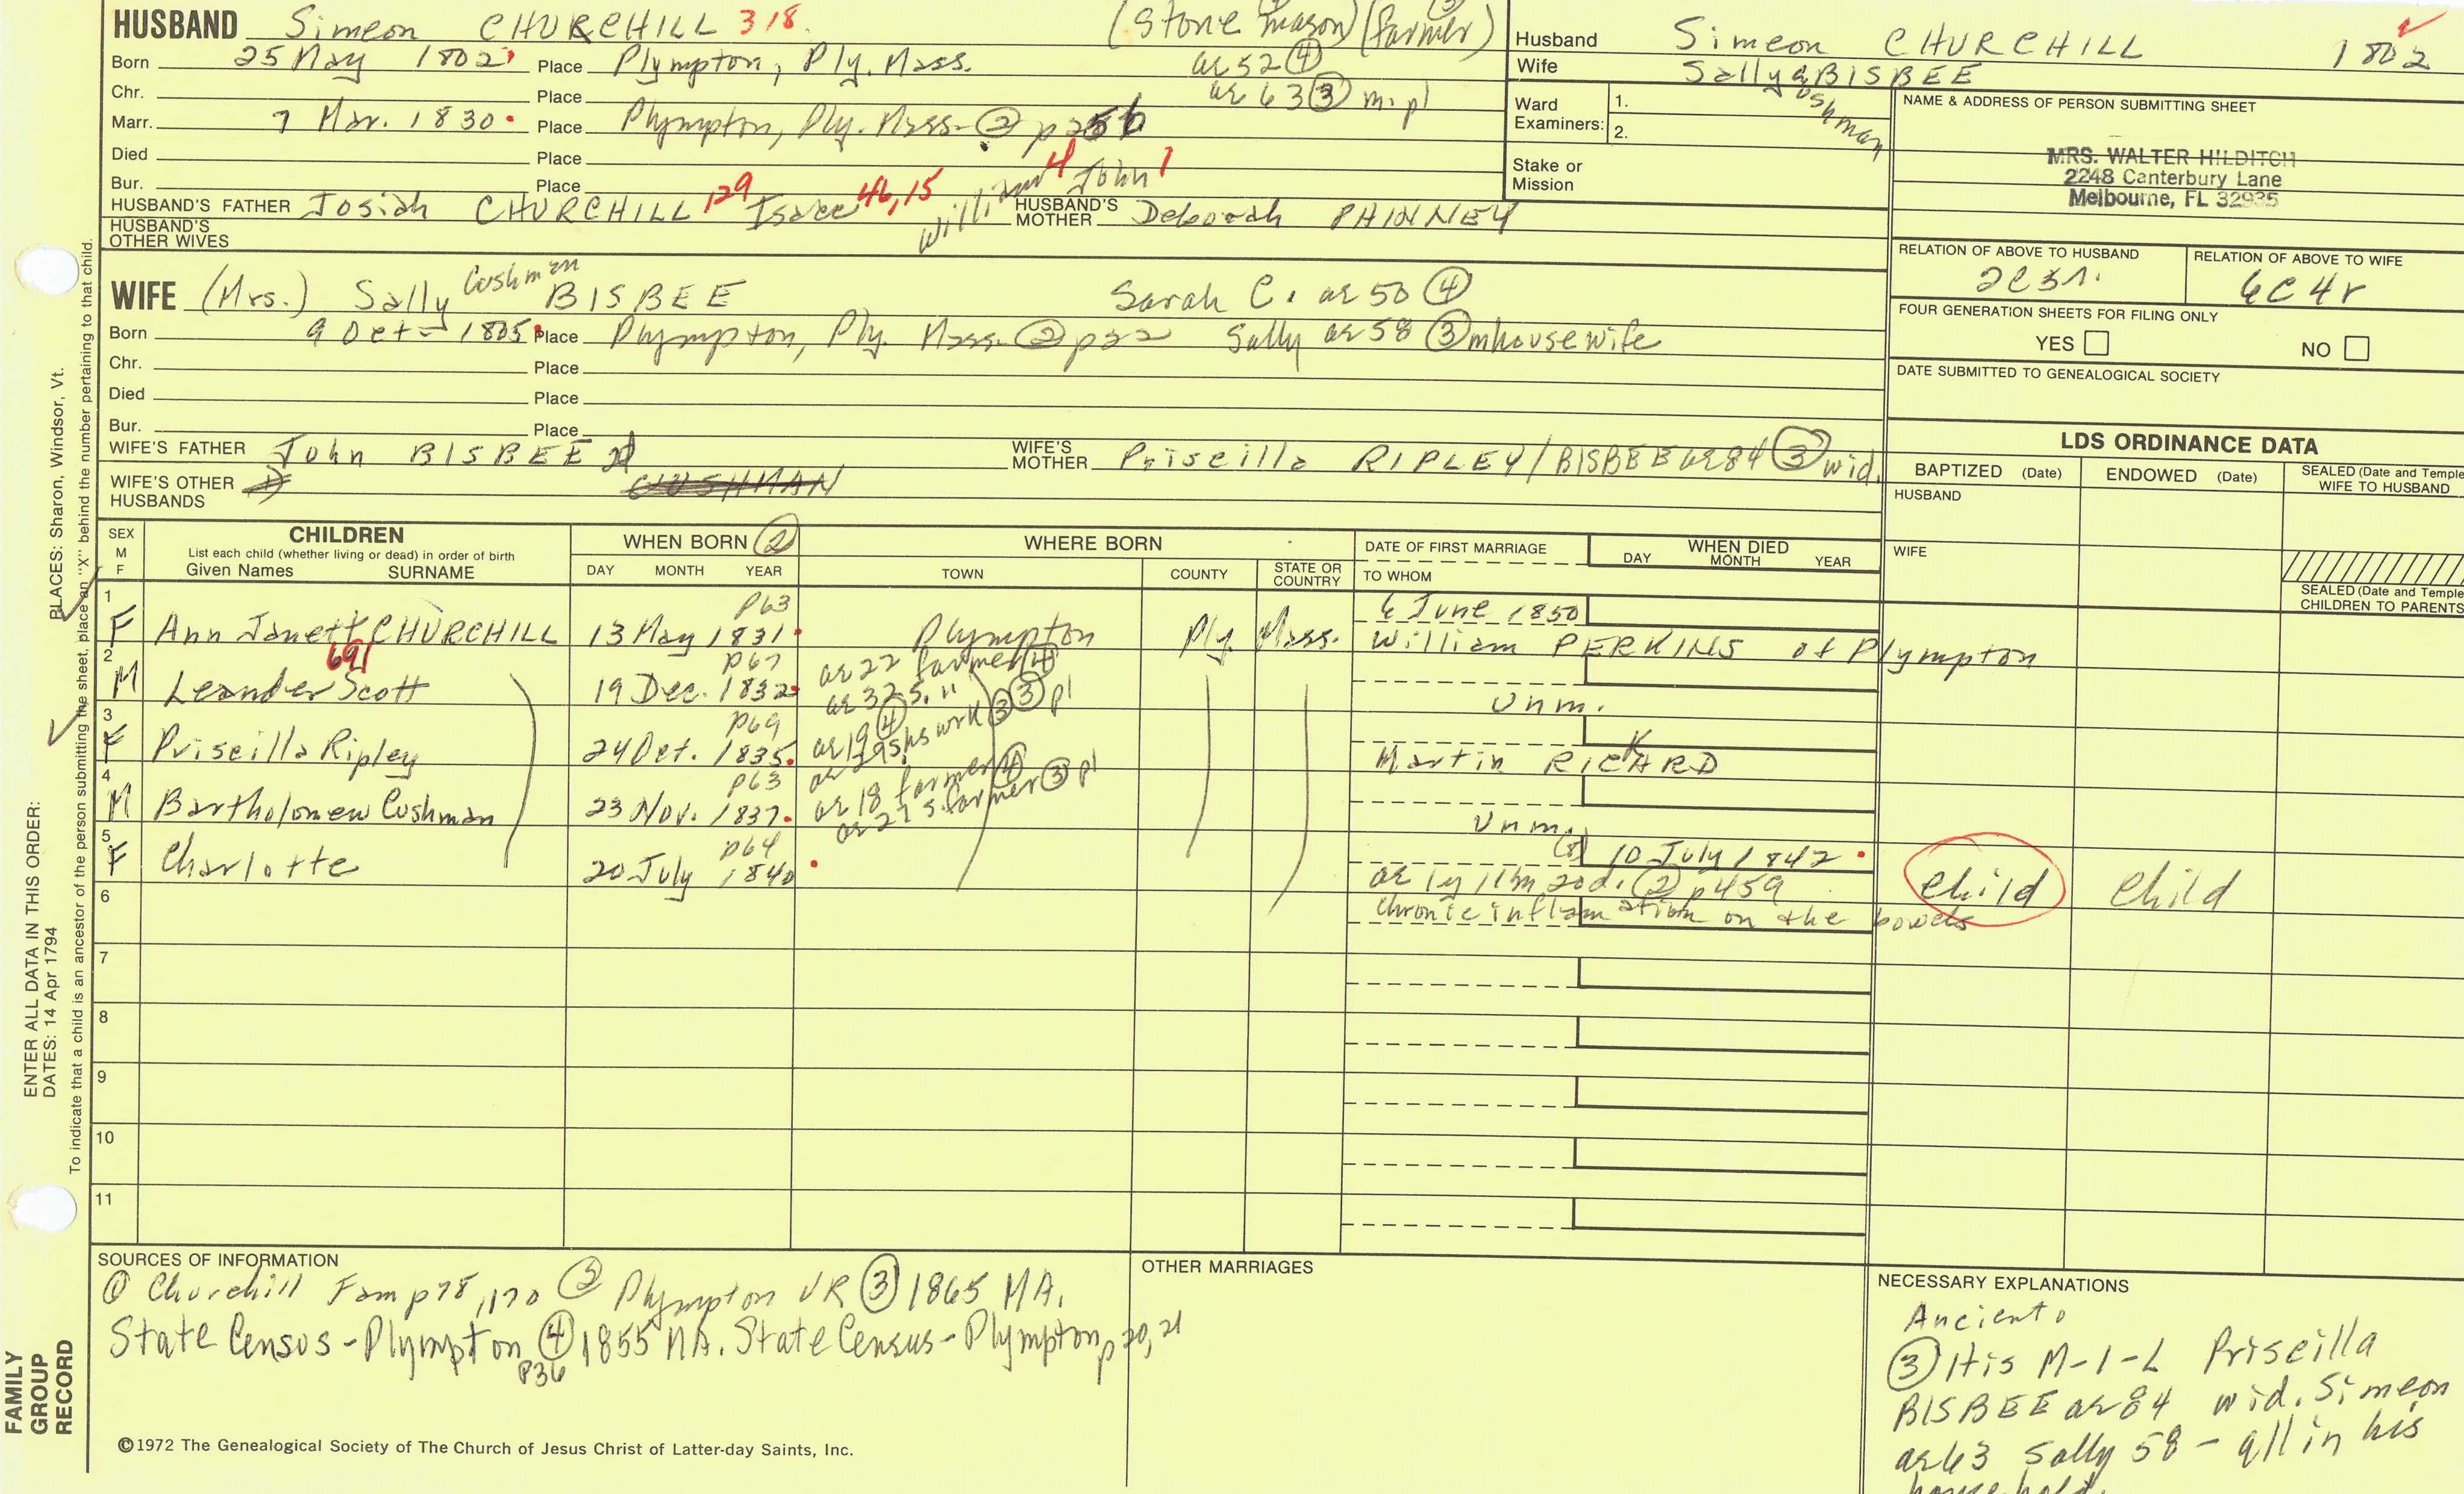 HUSBAND Simeon CHURCHILL 318. (Stone mason) (farmer)
Born 25 May 1802 Place Plympton, Ply. Mass. ae 52 ④
Chr. Place ae 63 ③ m. pl
Marr. 7 Mar. 1830 Place Plympton, Ply. Mass. ② p256
Died Place
Bur. Place
HUSBAND'S FATHER Josiah CHURCHILL 129 Isaac 46,15 William 4 John 1 HUSBAND'S MOTHER Deborah PHINNEY
HUSBAND'S OTHER WIVES
Husband Simeon CHURCHILL 1802
Wife Sally BISBEE
Cushman
Ward Examiners: 1.
2.
Stake or Mission
NAME & ADDRESS OF PERSON SUBMITTING SHEET
MRS. WALTER HILDITCH
2248 Canterbury Lane
Melbourne, FL 32935
RELATION OF ABOVE TO HUSBAND RELATION OF ABOVE TO WIFE
6C4r
FOUR GENERATION SHEETS FOR FILING ONLY
YES NO
DATE SUBMITTED TO GENEALOGICAL SOCIETY
WIFE (Mrs.) Sally Cushman BISBEE Sarah C. ae 50 ④
Born 9 Oct 1805 Place Plympton, Ply. Mass. ② p22 Sally ae 58 ③ m housewife
Chr. Place
Died Place
Bur. Place
WIFE'S FATHER John BISBEE WIFE'S MOTHER Priscilla RIPLEY/BISBEE ae 84 ③ wid.
WIFE'S OTHER HUSBANDS CUSHMAN
LDS ORDINANCE DATA
BAPTIZED (Date) ENDOWED (Date) SEALED (Date and Temple WIFE TO HUSBAND
HUSBAND
WIFE
SEALED (Date and Temple CHILDREN TO PARENTS
SEX M F CHILDREN WHEN BORN ② WHERE BORN DATE OF FIRST MARRIAGE WHEN DIED
List each child (whether living or dead) in order of birth
Given Names SURNAME DAY MONTH YEAR TOWN COUNTY STATE OR COUNTRY TO WHOM DAY MONTH YEAR
1 p63 6 June 1850
F Ann Janett CHURCHILL 13 May 1831 Plympton Ply. Mass. William PERKINS of Plympton
2 691 p67 ae 22 farmer ④
M Leander Scott 19 Dec. 1832 ae 32 s. " ③ pl Unm.
3 p69 ae 19 ④
F Priscilla Ripley 24 Oct. 1835 ae 29 s hs wrk ③ Martin RICKARD
4 p63 ae 18 farmer ④
M Bartholomew Cushman 23 Nov. 1837 ae 27 s. farmer ③ pl Unm.
5 p64 10 July 1842
F Charlotte 20 July 1840 ae 1y 11m 20d. ② p459 Child Child
6 chronic inflamation on the bowels
7
8
9
10
11
SOURCES OF INFORMATION
① Churchill Fam p78, 170 ② Plympton VR ③ 1865 MA.
State Census - Plympton p36 ④ 1855 MA. State Census - Plympton p20, 21
OTHER MARRIAGES
NECESSARY EXPLANATIONS
③ His M-I-L Priscilla
BISBEE ae 84 wid. Simeon
ae 63 Sally 58 - all in his
household.
©1972 The Genealogical Society of The Church of Jesus Christ of Latter-day Saints, Inc.
FAMILY GROUP RECORD
ENTER ALL DATA IN THIS ORDER:
DATES: 14 Apr 1794
PLACES: Sharon, Windsor, Vt.
To indicate that a child is an ancestor of the person submitting the sheet, place an "X" behind the number pertaining to that child.